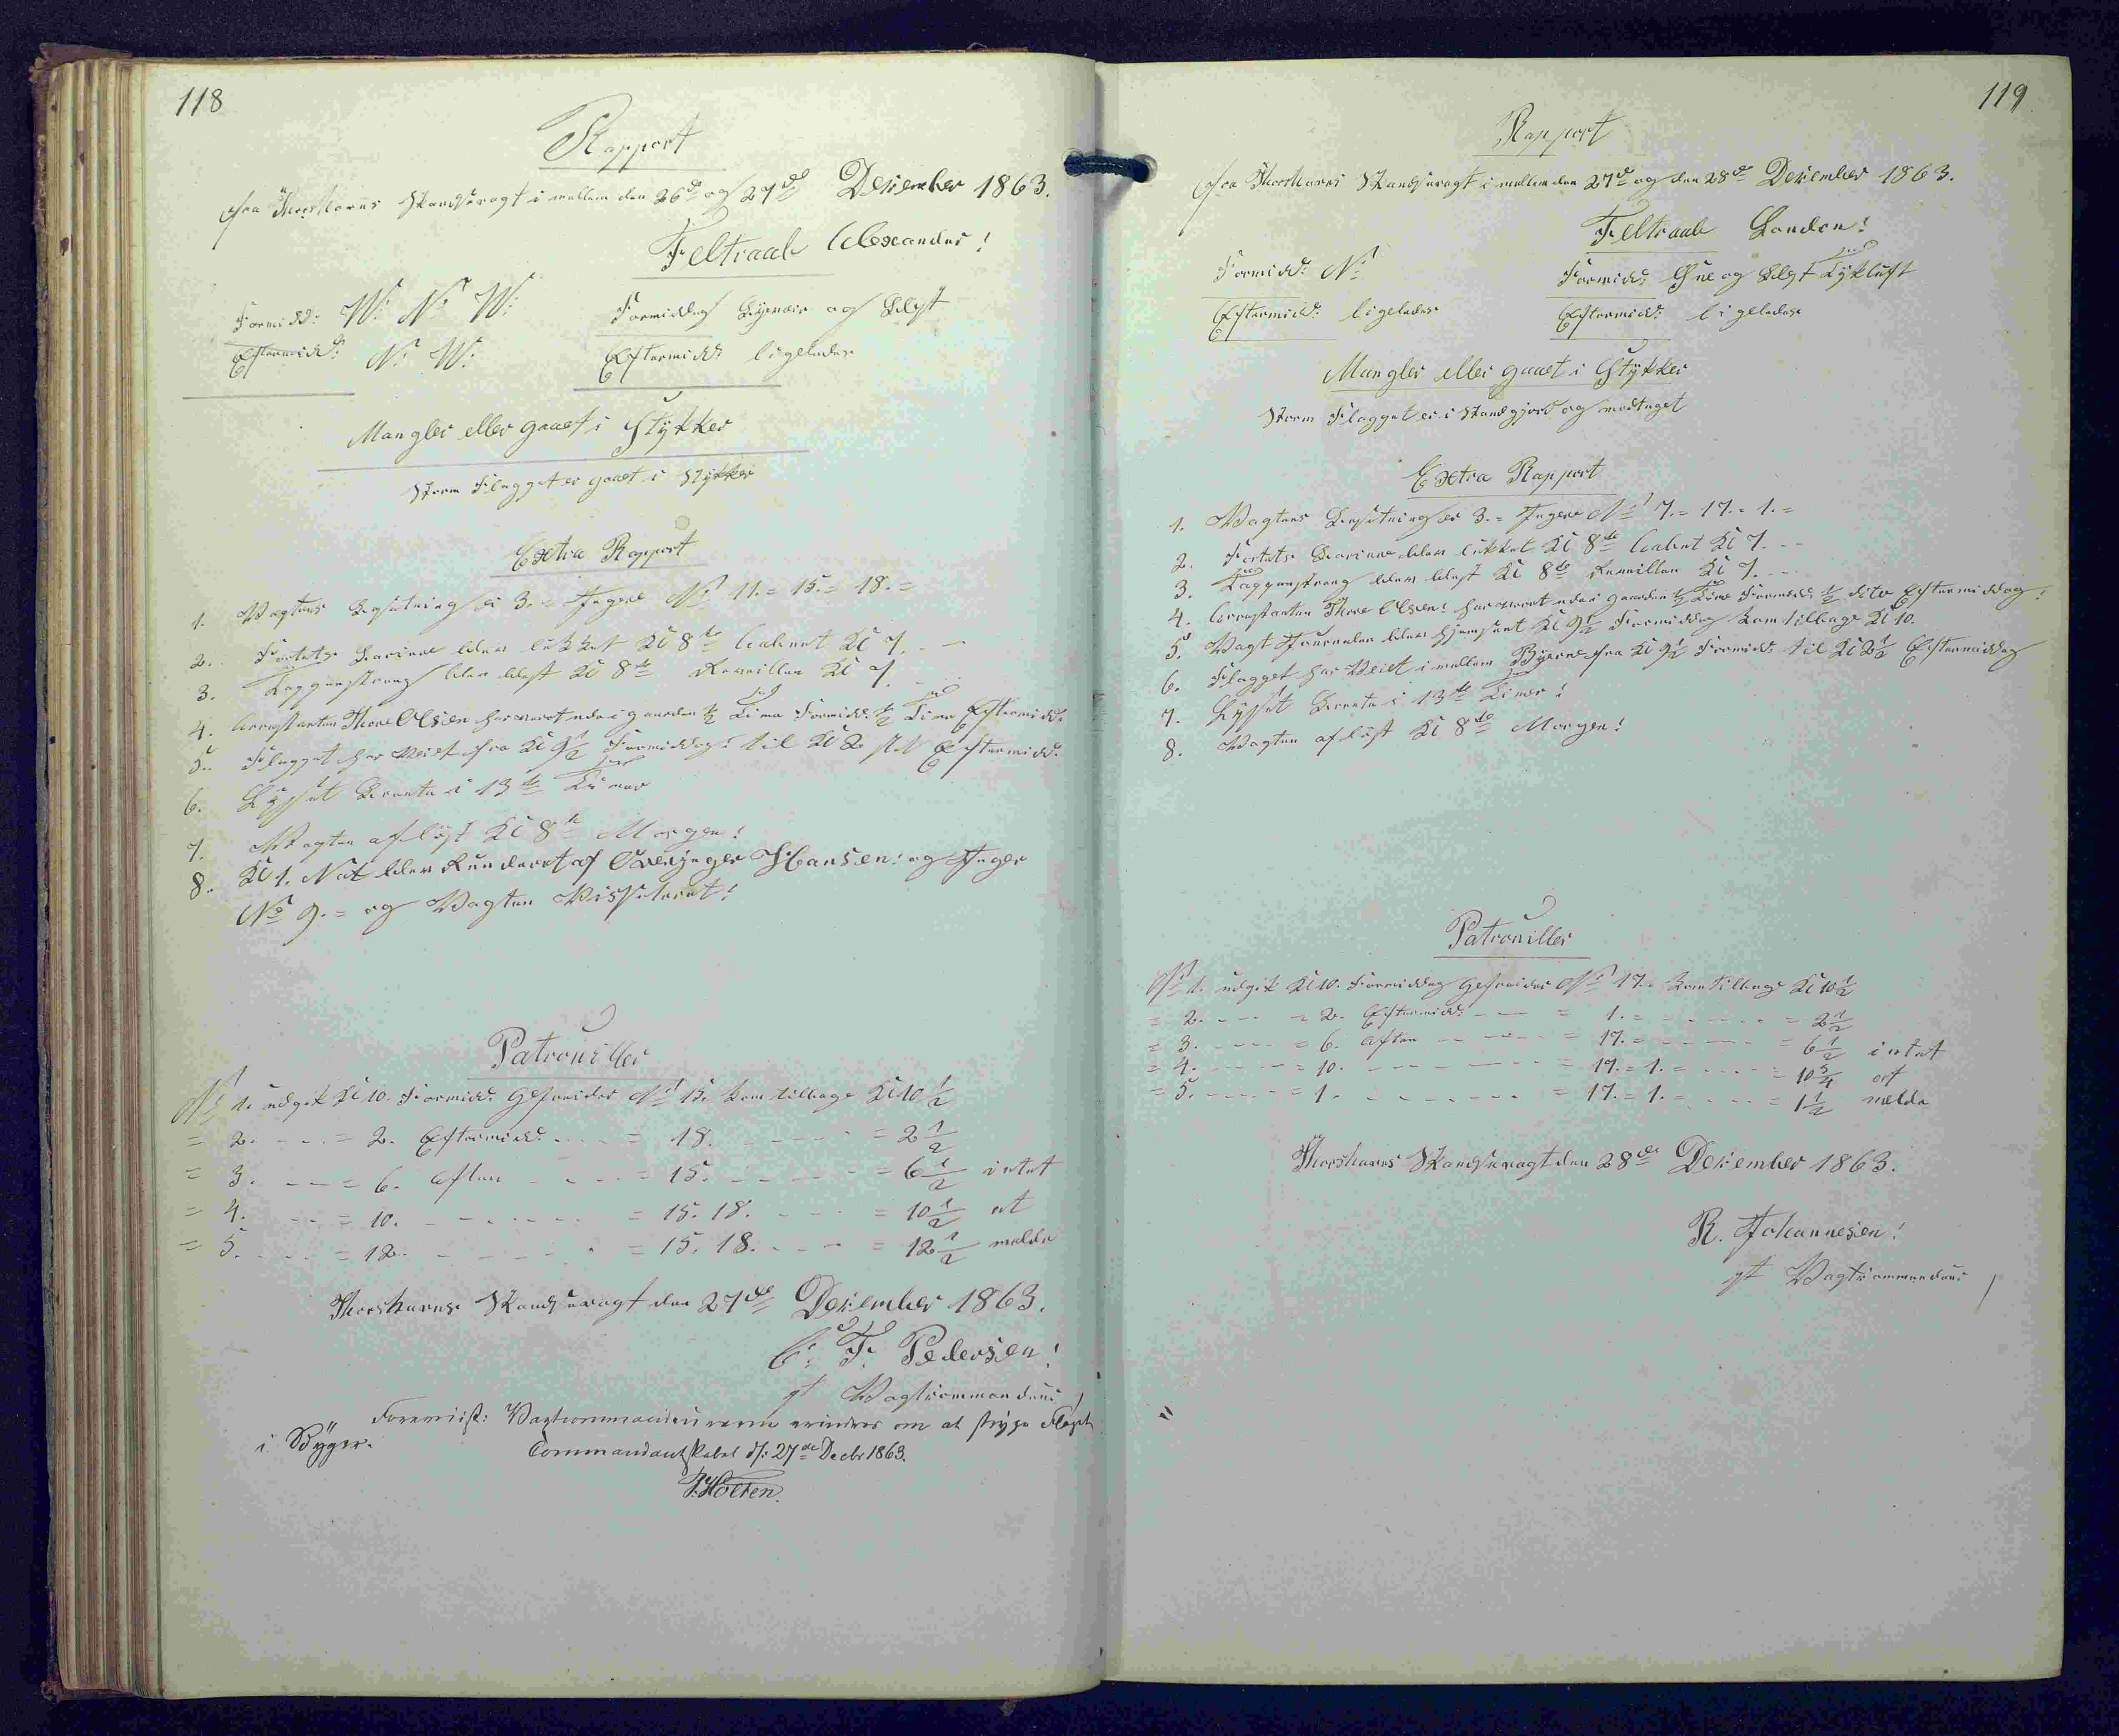 118
Rapport
fra Thorshavns Skandsevagt i mellem den 26de og 27de December 1863.
Feltraab Alexander!
Formidd: W: N: W: Formiddag og Blæst
Eftermidd: N: W: Eftermidd: ligeledes
Mangler eller gaaet i Stykker
Storm Flagget er gaaet i Stykker
Extra Rapport
1. Vagtens Besætning er 3. = Jægere No 11. = 15. = 18. =
2. Fortets Barriere blev lukket Kl 8te aabnet Kl 7. - -
3. Tappenstreng blev blæst Kl 8te Reveillen Kl 7. - -
4. Arrestanten Thore Olsen har været ude i gaarden 1/2 Time Formidd: 1/2 Time Eftermidd:
5. Flagget har Veiet fra Kl 9 1/2 Formiddag: til Kl 2 Eftermidd:
6. Lyset Brente i 13te Timer
7. Vagten afløst Kl 8te Morgen!
8. Kl 1. Nat blev Runderet af Overjæger Hansen: og Jæger
No 9. = og Vagten Vissiteret!
Patrouiller
No 1. udgik Kl 10. Formidd: Gefreider No 15. kom tilbage Kl 10 1/2
= 2. - - - = 2. Eftermidd: - - - = 18. - - - - = 2 1/2
= 3. - - - = 6. Aften - - - = 15. - - - - = 6 1/2 intet
= 4. - - - = 10. - - - - - - = 15. 18. - - - = 10 1/2 at
= 5. - - - = 12. - - - - - - = 15. 18. - - - = 12 1/2 melde
Thorshavns Skandsevagt den 27de December 1863.
C: F. Pedersen!
gt Vagtcommandeur
Foreviist: Vagtcommandeurerne erindres om at stryge Flaget
i Byger. Commandantskabet d/: 27de Decbr 1863.
HHolten.
119
Rapport
fra Thorshavns Skandsevagt i mellem den 27de og den 28de December 1863.
Feltraab London!
Formidd: N: Formidd: Snee og Blæst Tykluft
Eftermidd: ligeledes Eftermidd: ligeledes
Mangler eller gaaet i Stykker
Storm Flagget er i Standgjord og modtaget
Extra Rapport
1. Vagtens Besætning er 3. = Jægere No 7. = 17. = 1. =
2. Fortets Barriere blev lukket Kl 8te aabnet Kl 7. - -
3. Tappenstreng blev blæst Kl 8te Reveillen Kl 7. - -
4. Arrestanten Thore Olsen: har været ude i gaarden 1/2 Time Formidd: 1/2 dito Eftermiddag!
5. Vagt Journalen blev hjemsent Kl 9 1/2 Formiddag kom tilbage Kl 10.
6. Flagget har Veiet i mellem Byerne fra Kl 9 1/2 Formidd: til Kl 2 1/2 Eftermiddag
7. Lyset Brente i 13te Timer!
8. Vagten afløst Kl 8te Morgen!
Patrouiller
No 1. udgik Kl 10. Formiddag Gefreider No 17. kom tilbage Kl 10 1/2
= 2. - - - = 2. Eftermidd: - - - = 1. = - - - - = 2 1/2
= 3. - - - = 6. Aften - - - - = 17. = - - - - = 6 1/2 intet
= 4. - - - = 10. - - - - - - = 17. = 1. = - - - = 10 3/4 at
= 5. - - - = 1. - - - - - - = 17. = 1. = - - - = 1 1/2 melde
Thorshavns Skandsevagt den 28de December 1863.
R. Johannesen!
gt Vagtcommandeur